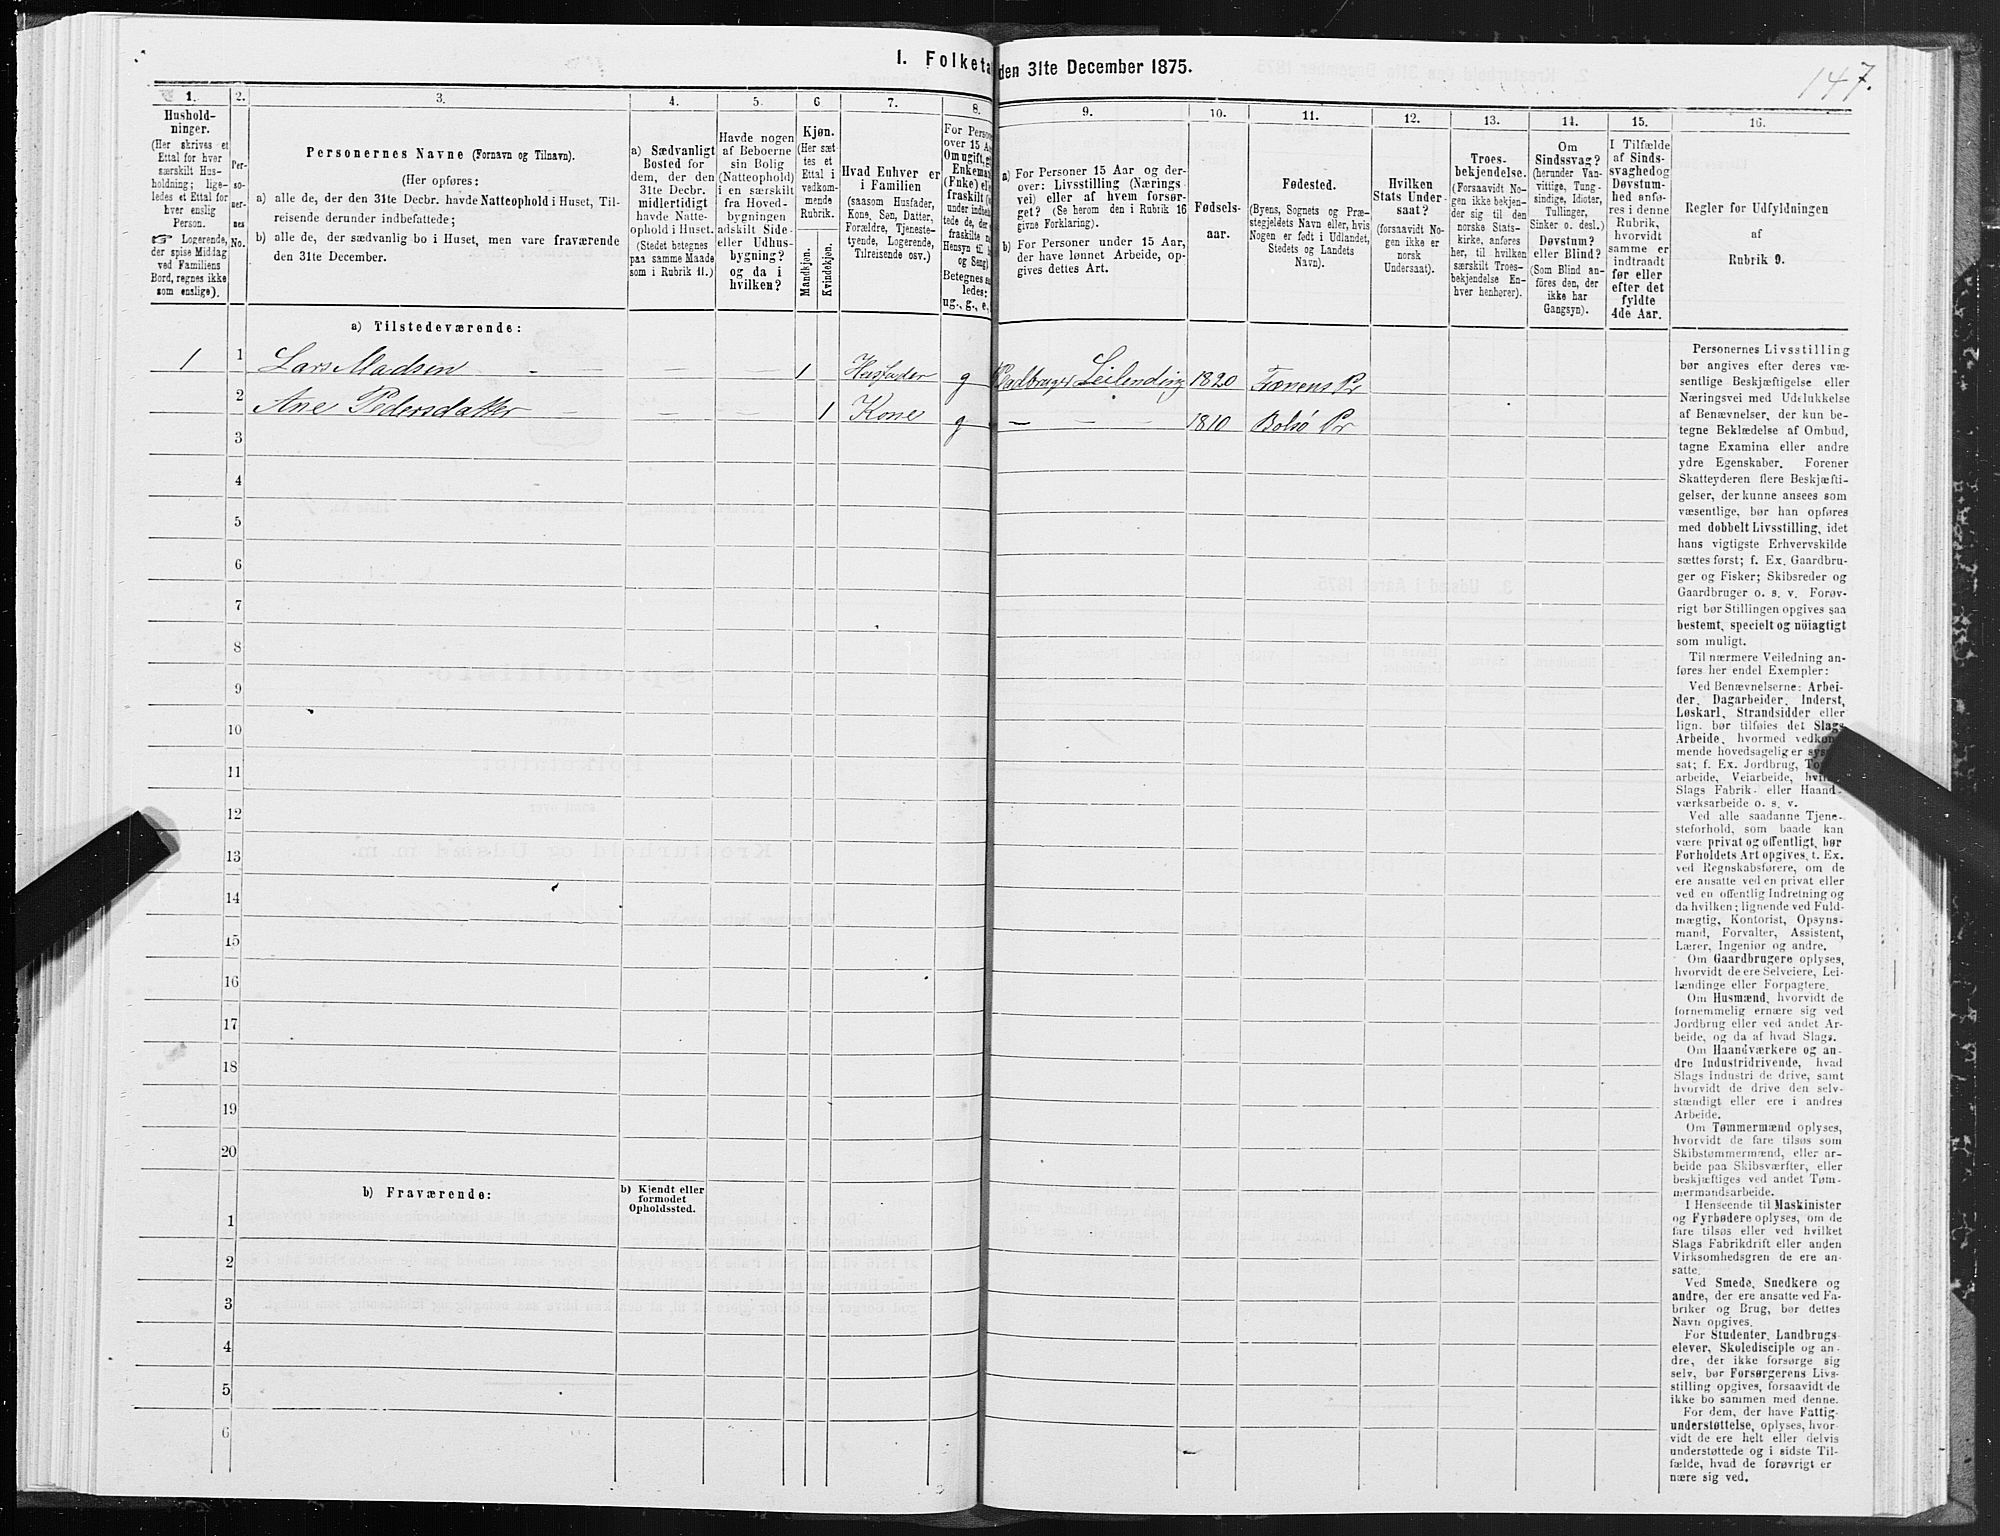 147.
I. Folketa den 31te December 1875.
1. 2. 3. 4. 5. 6 7. 8.
9. 10. 11. 12. 13. 14. 15. 16.
Hushold-
ninger.
(Her skrives et
Ettal for hver
særskilt Hus-
holdning; lige-
ledes et Ettal for
hver enslig
Person.
☞ Logerende,
der spise Middag
ved Familiens
Bord, regnes ikke
som enslige).
Per-
so-
ner-
nes
No.
Personernes Navne (Fornavn og Tilnavn).
(Her opføres:
a) alle de, der den 31te Decbr. havde Natteophold i Huset, Til-
reisende derunder indbefattede;
b) alle de, der sædvanlig bo i Huset, men vare fraværende
den 31te December.
a) Sædvanligt
Bosted for
dem, der den
31te Decbr.
midlertidigt
havde Natte-
ophold i Huset.
(Stedet betegnes
paa samme Maade
som i Rubrik 11.)
Havde nogen
af Beboerne
sin Bolig
(Natteophold)
i en særskilt
fra Hoved-
bygningen
adskilt Side-
eller Udhus-
bygning?
og da i
hvilken?
Kjøn.
(Her sæt-
tes et
Ettal i
vedkom-
mende
Rubrik.
Mandkjøn.
Kvindekjøn.
Hvad Enhver er
i Familien
(saasom Husfader,
Kone, Søn, Datter,
Forældre, Tjeneste-
tyende, Logerende,
Tilreisende osv.)
For Person
over 15 Aa
Om ugift, g
Enkeman
(Enke) ell
fraskilt (
under indbe
tede de, der
fraskilte
Hensyn til
og Seng)
Betegnes saa
ledes:
ug., g., e.,
a) For Personer 15 Aar og der-
over: Livsstilling (Nærings
vei) eller af hvem forsør-
get? (Se herom den i Rubrik 16
givne Forklaring).
b) For Personer under 15 Aar,
der have lønnet Arbeide, op-
gives dettes Art.
Fødsels-
aar.
Fødested.
(Byens, Sognets og Præ-
stegjeldets Navn eller, hvis
Nogen er født i Udlandet,
Stedets og Landets
Navn).
Hvilken
Stats Under-
saat?
(forsaavidt No-
gen ikke er
norsk
Undersaat).
Troes-
bekjendelse.
(Forsaavidt No-
gen ikke bekjen-
der sig til den
norske Stats-
kirke, anføres
her, til hvilken
særskilt Troes-
bekjendelse En-
hver henhører).
Om
Sindssvag?
(herunder Van-
vittige, Tung-
sindige, Idioter,
Tullinger,
Sinker o. desl.)
Døvstum?
eller Blind?
(Som Blind an-
føres den, der
ikke har
Gangsyn).
I Tilfælde
af Sinds-
svaghed og
Døvstum-
hed anfø-
res i denne
Rubrik,
hvorvidt
samme er
indtraadt
før eller
efter det
fyldte
4de Aar.
Regler for Udfyldningen
af
Rubrik 9.
a) Tilstedeværende:
1 1 Lars Madsen - — — — 1 Husfader g Gaardbruger Leilending 1820 Frænens Pr
2 Ane Pedersdatter — — — 1 Kone g — — — 1810 Bolsø Pr
3
4
5
6
7
8
9
10
11
12
13
14
15
16
17
18
19
20
b) Fraværende:
b) Kjendt eller
formodet
Opholdssted.
1
2
3
4
5
6
Personernes Livsstilling
bør angives efter deres væ-
sentlige Beskjæftigelse eller
Næringsvei med Udelukkelse
af Benævnelser, der kun be-
tegne Beklædelse af Ombud,
tagne Examina eller andre
ydre Egenskaber. Forener
Skatteyderen flere Beskjæfti-
gelser, der kunne ansees som
væsentlige, bør han opføres
med dobbelt Livsstilling, idet
hans vigtigste Erhvervskilde
sættes først; f. Ex. Gaardbru-
ger og Fisker; Skibsreder og
Gaardbruger o. s. v. Forøv-
rigt bør Stillingen opgives saa
bestemt, specielt og nöiagtigt
som muligt.
Til nærmere Veiledning an-
føres her endel Exempler:
Ved Benævnelserne: Arbei-
der, Dagarbeider, Inderst,
Løskarl, Strandsidder eller
lign. bør tilføies det Slags
Arbeide, hvormed vedkom-
mende hovedsagelig er syssel-
sat; f. Ex. Jordbrug, Tomte-
arbeide, Veiarbeide, hvilket
Slags Fabrik- eller Haand-
værksarbeide o. s. v.
Ved alle saadanne Tjene-
steforhold, som baade kan
være privat og offentligt, bør
Forholdets Art opgives, t. Ex.
ved Regnskabsførere, om de
ere ansatte ved en privat eller
ved en offentlig Indretning og
da hvilken; lignende ved Fuld-
mægtig, Kontorist, Opsyns-
mand, Forvalter, Assistent,
Lærer, Ingeniør og andre.
Om Gaardbrugere oplyses,
hvorvidt de ere Selveiere, Lei-
lændinge eller Forpagtere.
Om Husmænd, hvorvidt de
fornemmelig ernære sig ved
Jordbrug eller ved andet Ar-
beide, og da af hvad Slags.
Om Haandværkere og an-
dre Industridrivende, hvad
Slags Industri de drive, samt
hvorvidt de drive den selv-
stændigt eller ere i andres
Arbeide.
Om Tømmermænd oplyses,
hvorvidt de fare tilsøs som
Skibstømmermænd, eller ar-
beide paa Skibsværfter, eller
beskjæftiges ved andet Tøm-
mermandsarbeide.
I Henseende til Maskinister
og Fyrbødere oplyses, om de
fare tilsøs eller ved hvilket
Slags Fabrikdrift eller anden
Virksomhedsgren de ere an-
satte.
Ved Smede, Snedkere og
andre, der ere ansatte ved Fa-
briker og Brug, bør dettes
Navn opgives.
For Studenter, Landbrugs-
elever, Skoledisciple og an-
dre, der ikke forsørge sig
selv, bør Forsørgerens Livs-
stilling opgives, forsaavidt de
ikke bo sammen med denne.
For dem, der have Fattig-
understøttelse, oplyses, hvor-
vidt de ere helt eller delvis
understøttede og i sidste Til-
fælde, hvad de forøvrigt er
nære sig ved.